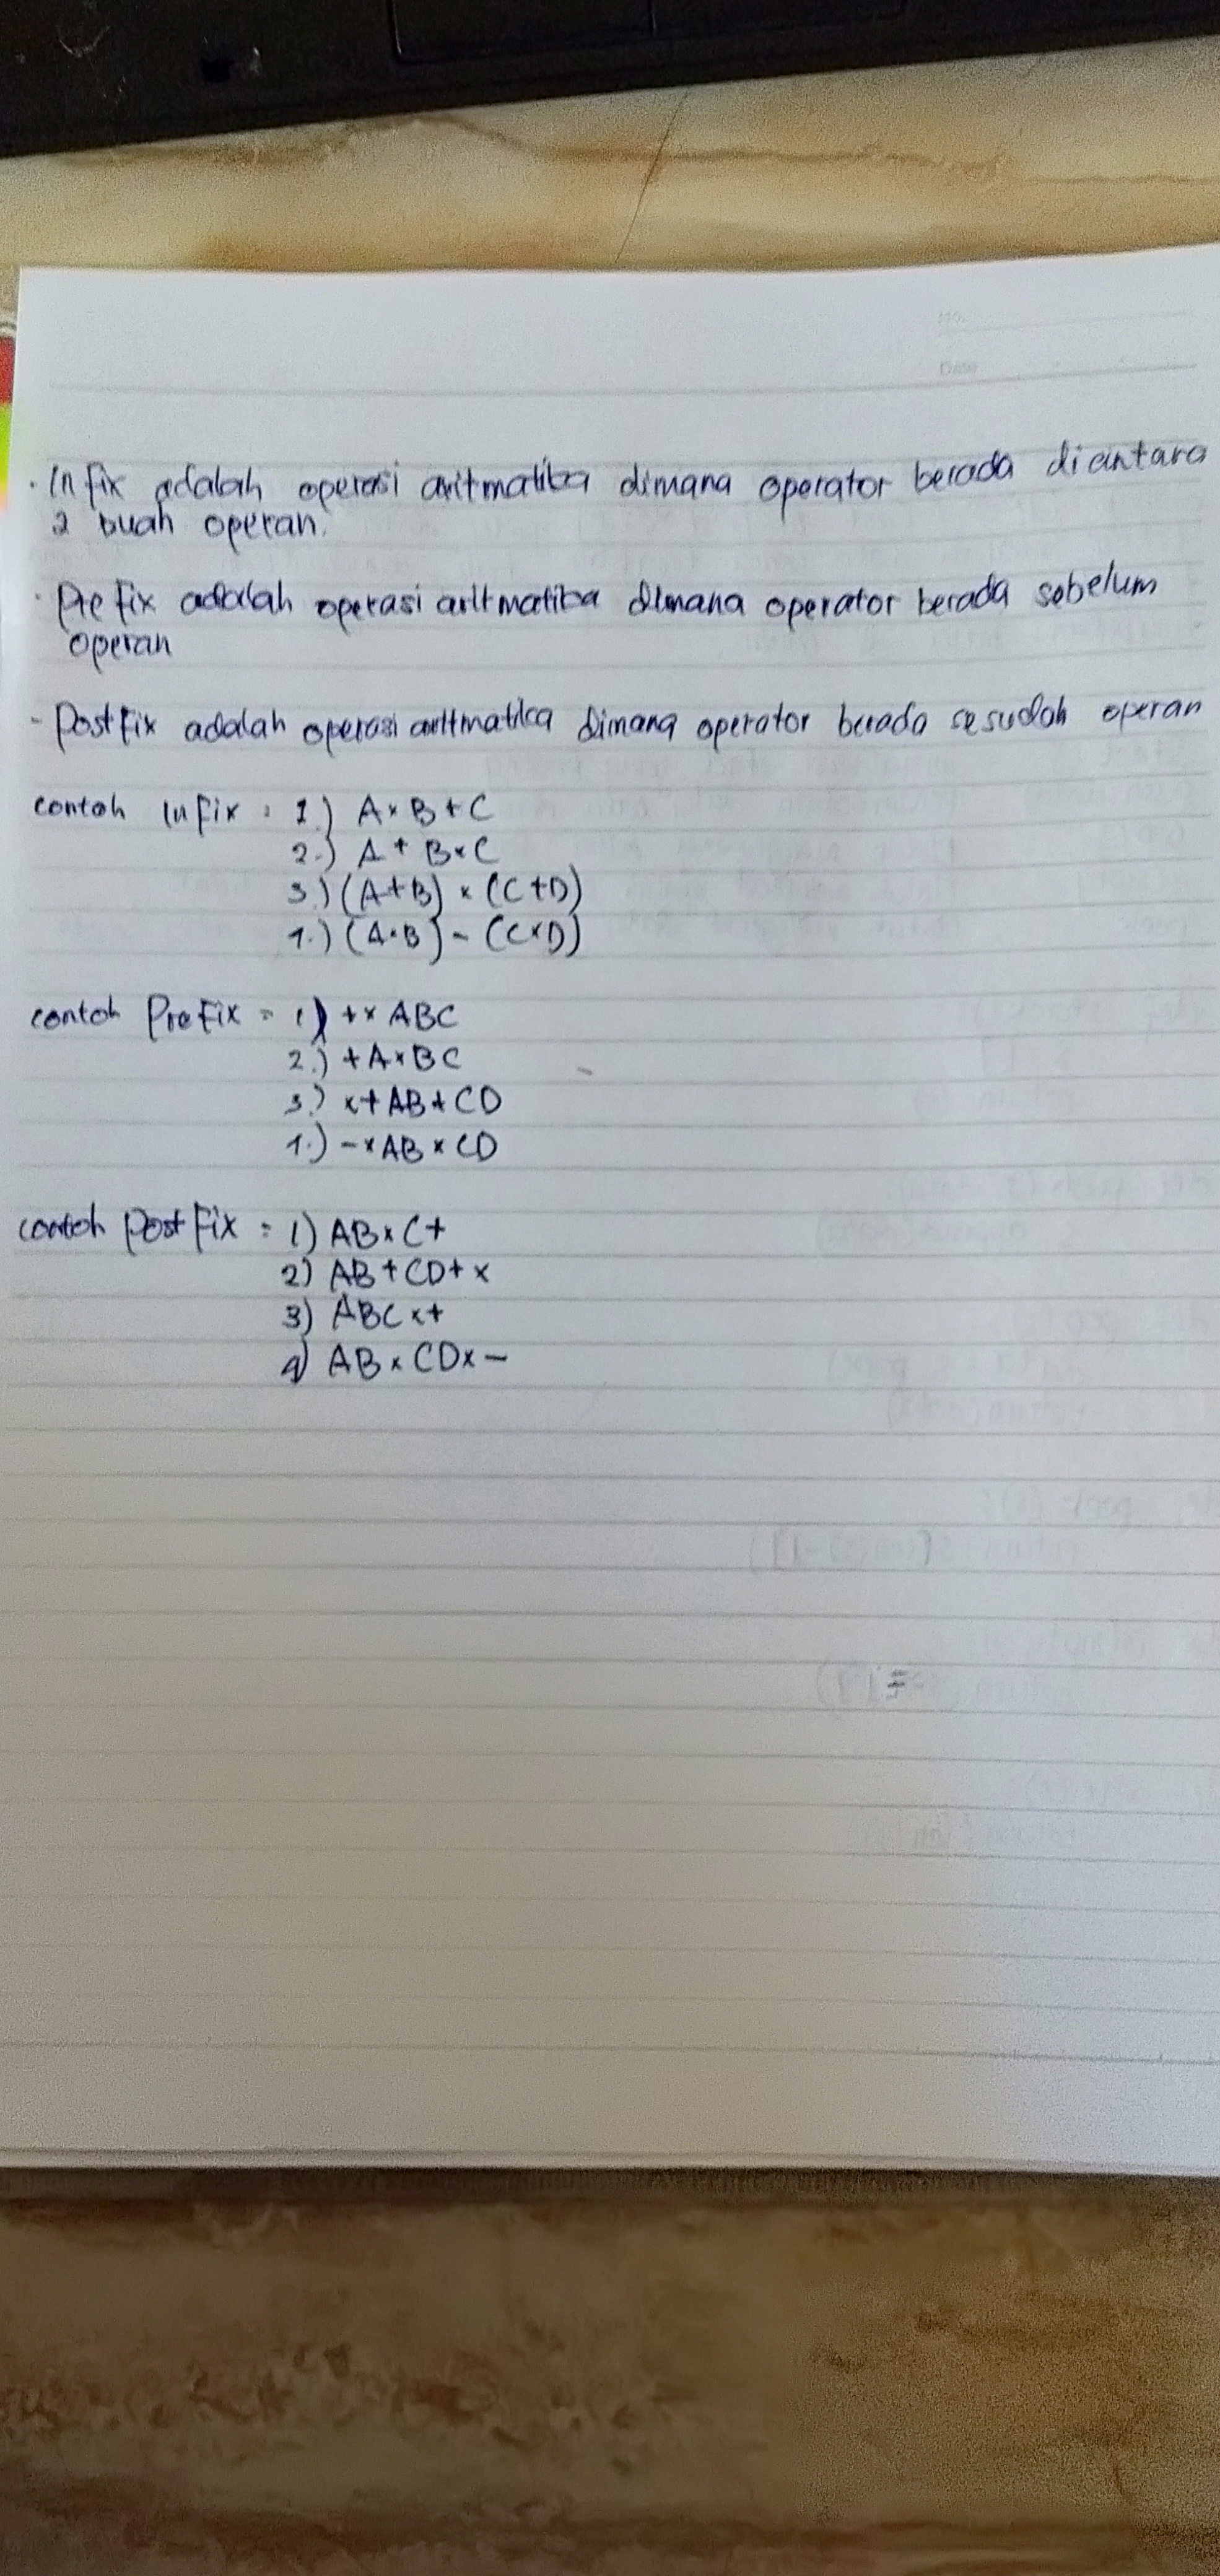 No.
Date
· Infix adalah operasi aritmatika dimana operator berada diantara
2 buah operan.
· Prefix adalah operasi aritmatika dimana operator berada sebelum
operan
- Postfix adalah operasi aritmatika dimana operator berada sesudah operan
contoh Infix : 1.) A × B + C
2.) A + B × C
3.) (A+B) × (C+D)
4.) (A×B) - (C×D)
contoh Prefix = 1) +× ABC
2.) +A×BC
3.) ×+AB+CD
4.) -×AB×CD
contoh Postfix : 1) AB×C+
2) AB+CD+×
3) ABC×+
4) AB×CD×-